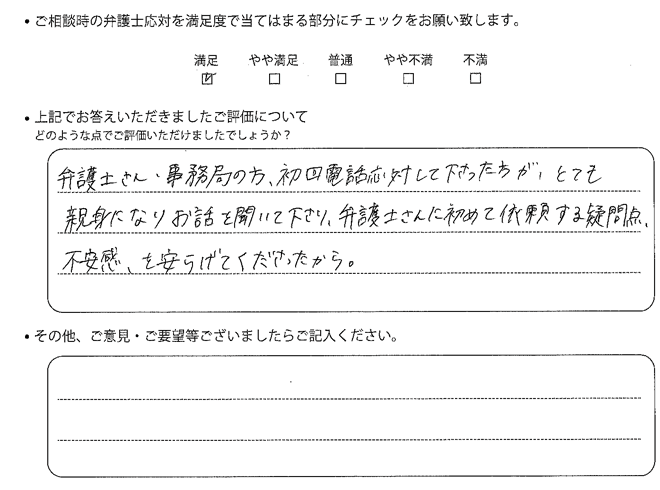 ・ご相談時の弁護士応対を満足度で当てはまる部分にチェックをお願い致します。
満足 やや満足 普通 やや不満 不満
・上記でお答えいただきましたご評価について
どのような点でご評価いただけましたでしょうか？
弁護士さん・事務局の方、初回電話応対して下さった方が、とても
親身になりお話を聞いて下さり、弁護士さんに初めて依頼する疑問点、
不安感、を安らげてくださったから。
・その他、ご意見・ご要望等ございましたらご記入ください。